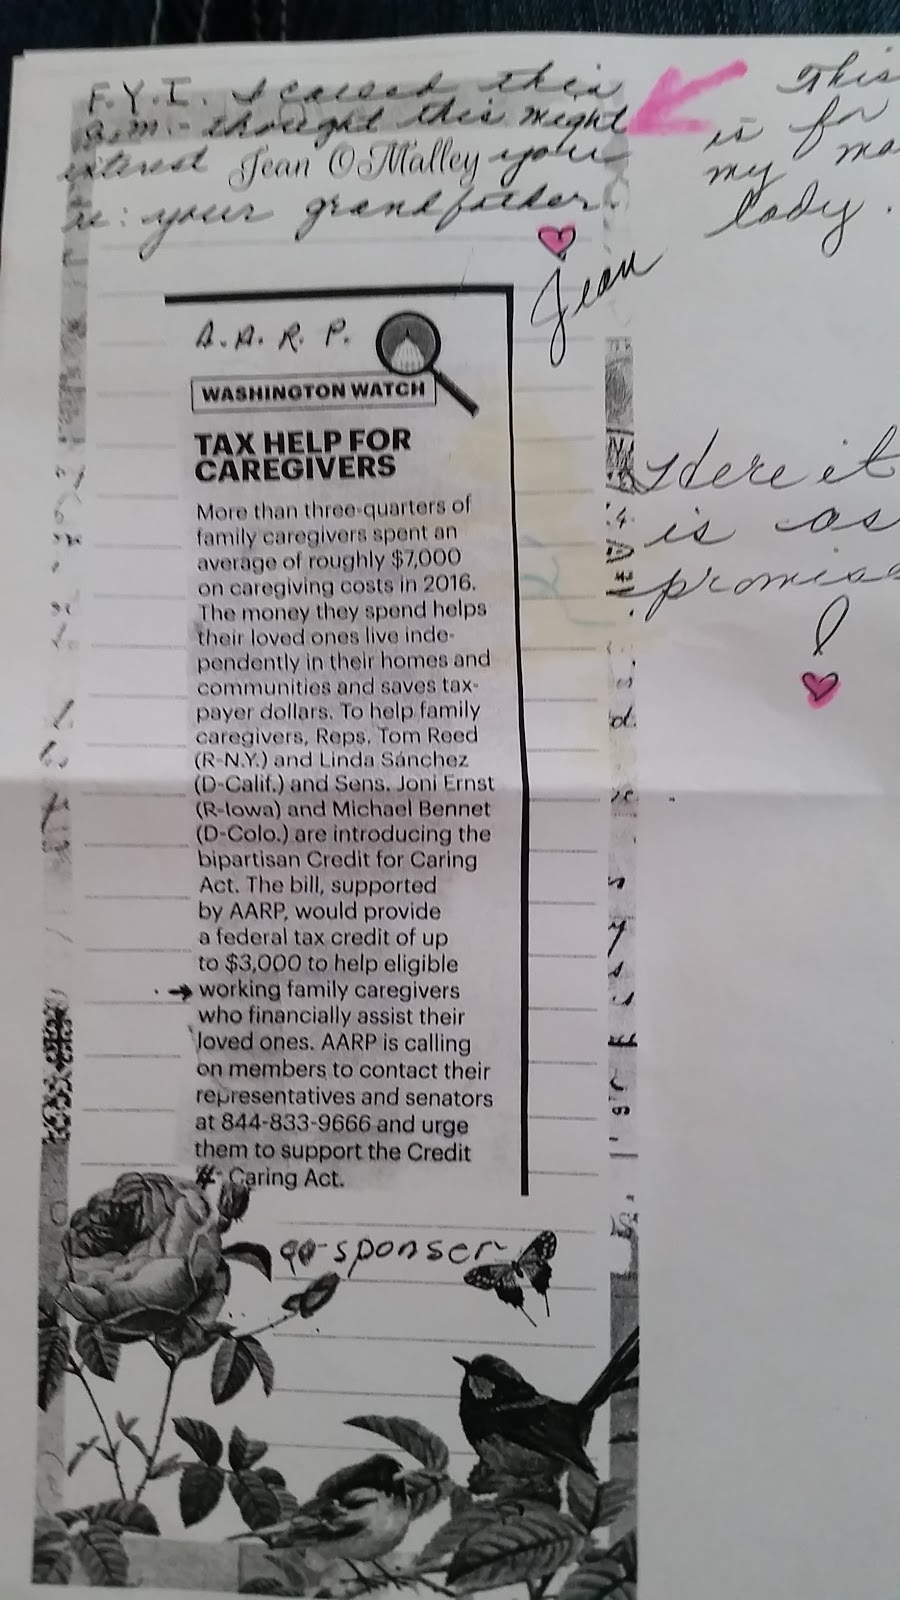 F.Y.I. I called this
a.m. - thought this might
interest Jean O'Malley you
re: your grandfather.
Jean
This
is for
my
lady.
Here it
is as
A.A.R.P.
WASHINGTON WATCH
TAX HELP FOR
CAREGIVERS
More than three-quarters of
family caregivers spent an
average of roughly $7,000
on caregiving costs in 2016.
The money they spend helps
their loved ones live inde-
pendently in their homes and
communities and saves tax-
payer dollars. To help family
caregivers, Reps. Tom Reed
(R-N.Y.) and Linda Sánchez
(D-Calif.) and Sens. Joni Ernst
(R-Iowa) and Michael Bennet
(D-Colo.) are introducing the
bipartisan Credit for Caring
Act. The bill, supported
by AARP, would provide
a federal tax credit of up
to $3,000 to help eligible
working family caregivers
who financially assist their
loved ones. AARP is calling
on members to contact their
representatives and senators
at 844-833-9666 and urge
them to support the Credit
Caring Act.
co-sponser